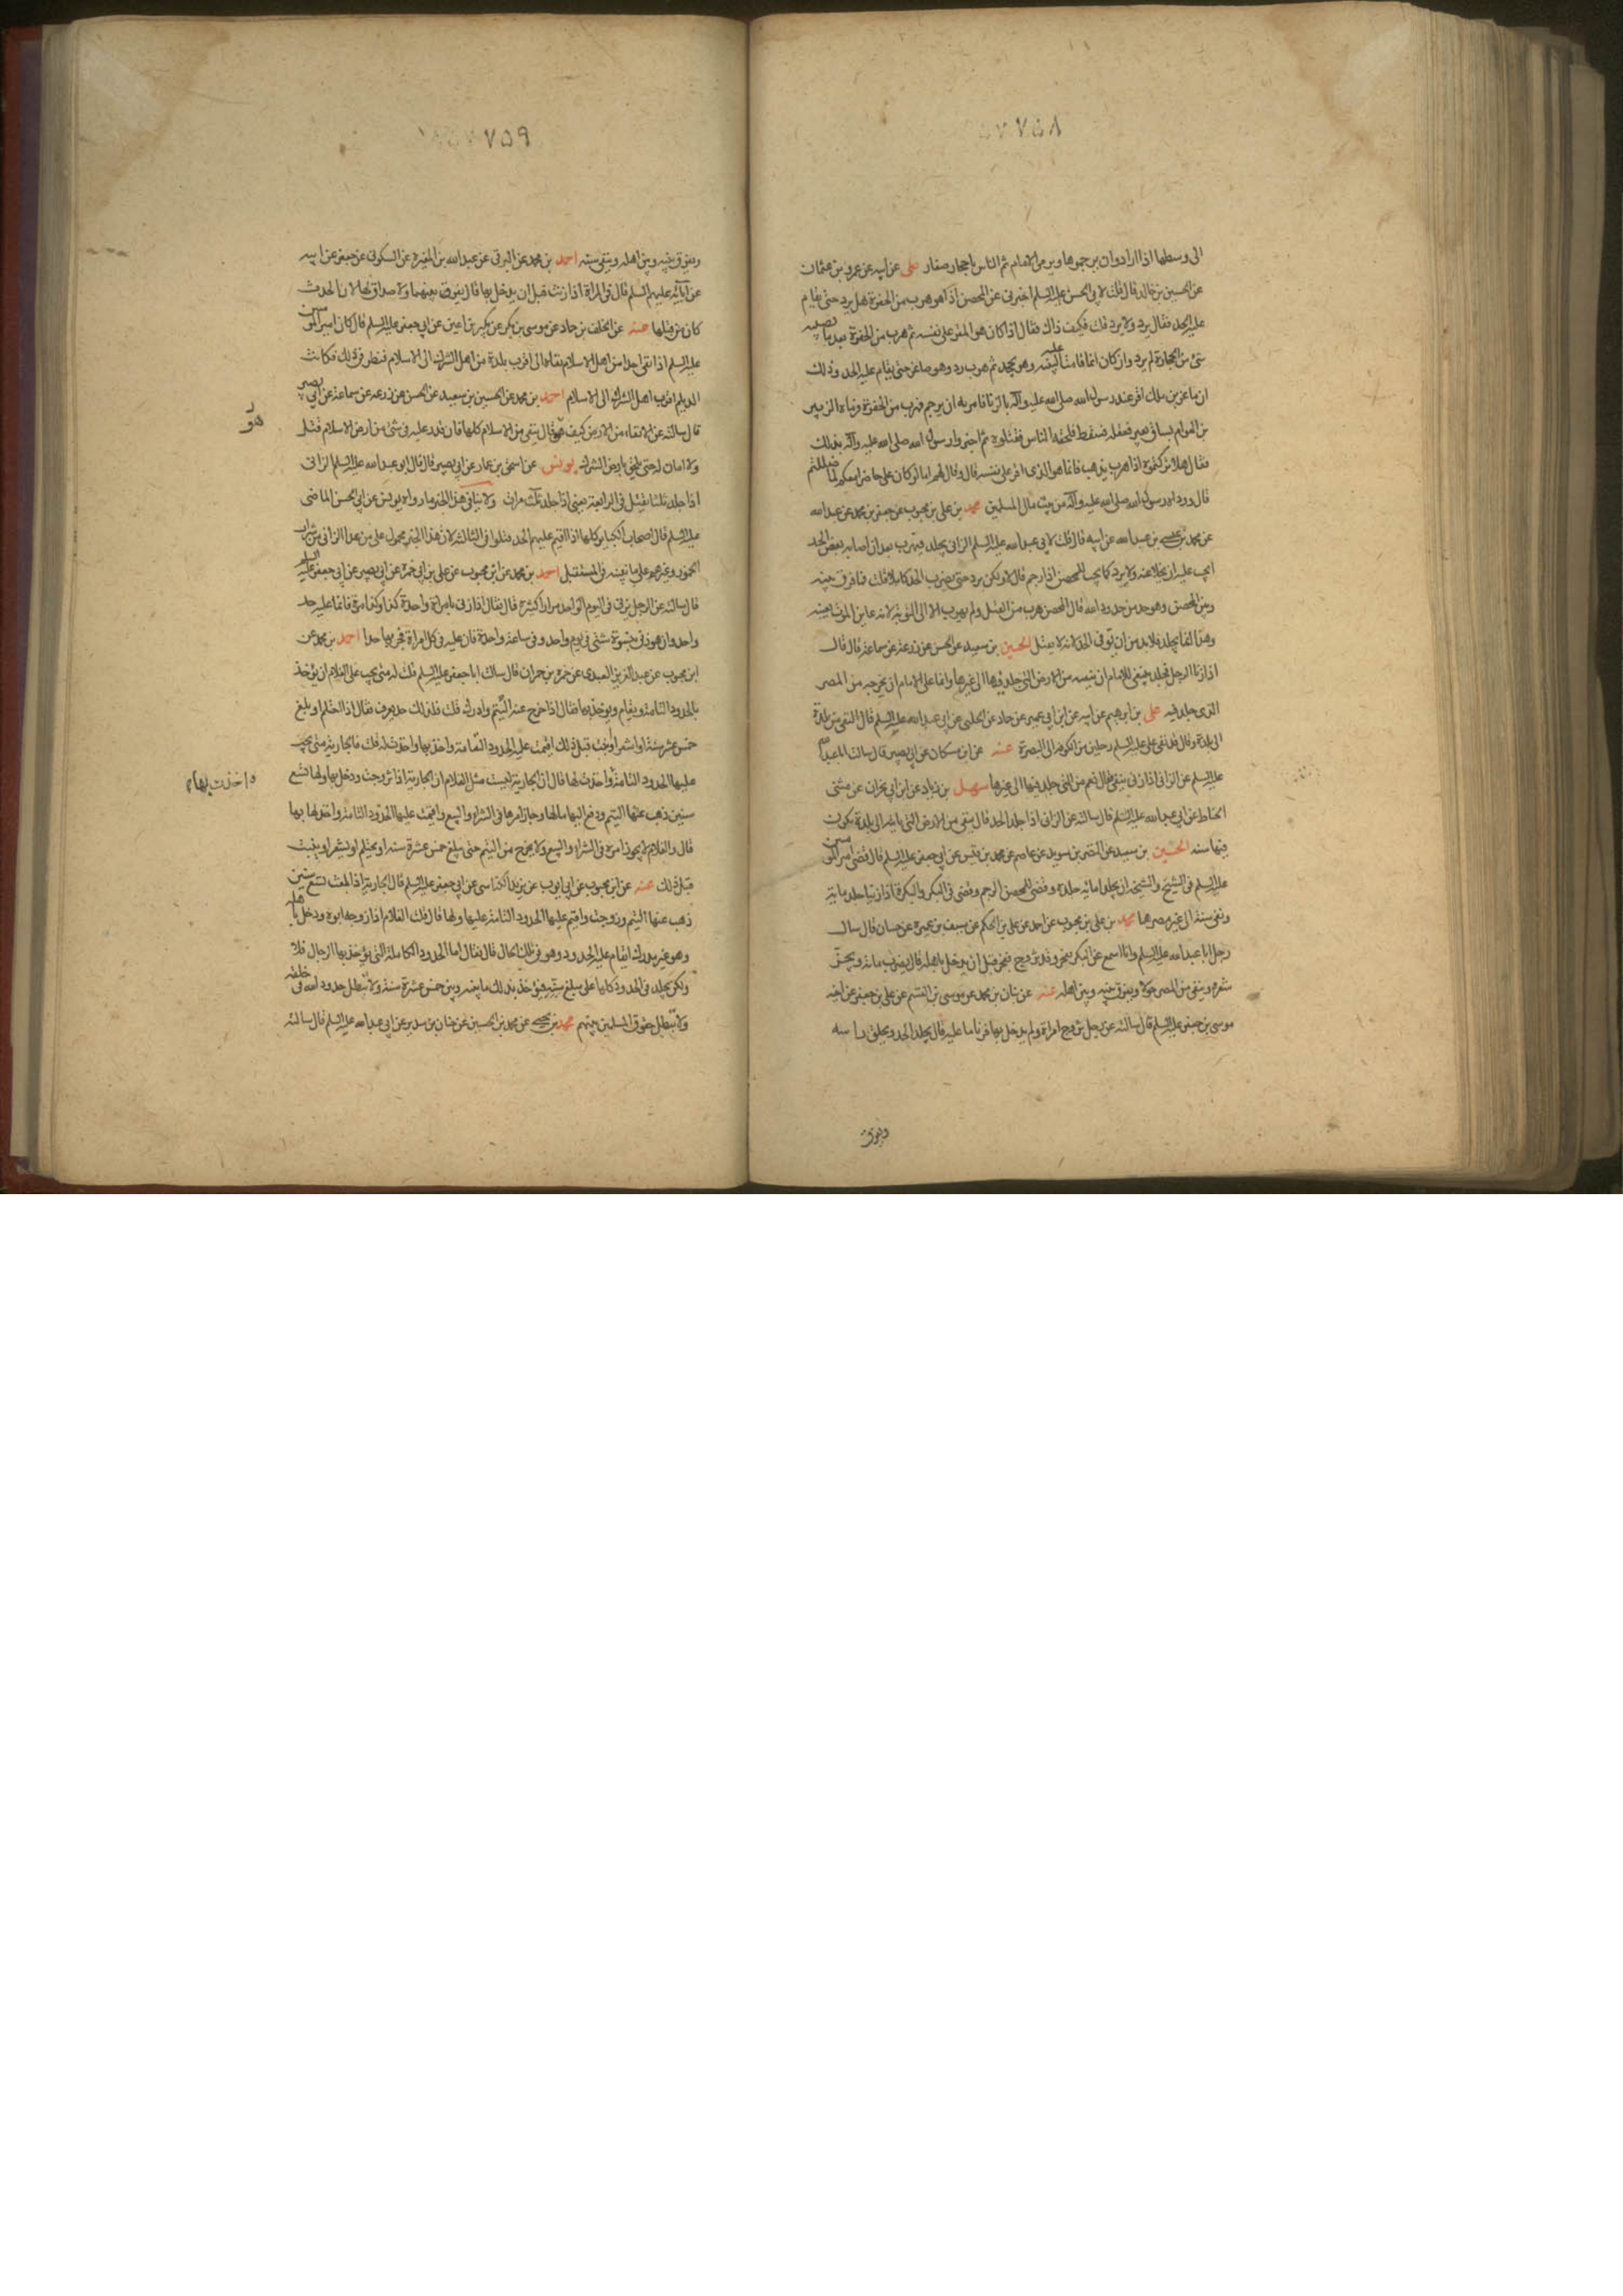 ٧٥٨
الى وسطها اذا ارادوا ان يرجموها ويرمى الامام ثم الناس باحجار صغار على عن ابيه عن عمرو بن عثمان
عن الحسين بن خالد قال قلت لابى الحسن عليه السلم اخبرنى عن المحصن اذا هو هرب من الحفرة هل يرد حتى يقام
عليه الحد فقال يرد ولا يرد قلت فكيف ذاك فقال اذا كان هو المقر على نفسه ثم هرب من الحفرة بعد ما يصيبه
شئ من الحجارة لم يرد وان كان انما قامت عليه البينة وهو يجحد ثم هرب رد وهو صاغر حتى يقام عليه الحد وذلك
ان ماعز بن ملك اقر عند رسول الله صلى الله عليه وآله بالزنا فامر به ان يرجم فهرب من الحفرة فرماه الزبير
بن العوام بساق بعير فعقله فسقط فلحقه الناس فقتلوه ثم اخبروا رسول الله صلى الله عليه وآله بذلك
فقال هلا تركتموه اذا هرب يذهب فانما هو الذى اقر على نفسه قال وقال لهم اما لو كان على حاضرا معكم لما ضللتم
قال ووداه رسول الله صلى الله عليه وآله من بيت مال المسلمين محمد بن على بن محبوب عن جعفر بن محمد عن عبد الله
عن محمد بن عيسى بن عبد الله عن ابيه قال قلت لابى عبد الله عليه السلم الزانى يجلد فيهرب بعد ان اصابه بعض الحد
ايجب عليه ان يخلا عنه ولا يرد كما يجب للمحصن اذا رجم قال لا ولكن يرد حتى يضرب الحد كاملا قلت فما فرق بينه
وبين المحصن وهو حد من حدود الله قال المحصن هرب من القتل ولم يهرب الا الى التوبة لانه عاين الموت بعينه
وهذا انما يجلد فلا بد من ان يوفى الحد لانه لا يقتل الحسين بن سعيد عن الحسن عن زرعة عن سماعة قال قال
اذا زنا الرجل فجلد فينبغى للامام ان ينفيه من الارض التى جلد فيها الى غيرها وانما على الامام ان يخرجه من المصر
الذى جلد فيه على بن ابرهيم عن ابيه عن ابن ابى عمير عن حماد عن الحلبى عن ابى عبد الله عليه السلم قال النفى من بلدة
الى بلدة وقال قد نفى على عليه السلم رجلين من الكوفة الى البصرة عنه عن ابن مسكان عن ابى بصير قال سالت ابا عبد الله
عليه السلم عن الزانى اذا زنى ينفى قال نعم من التى جلد فيها الى غيرها سهل بن زياد عن ابن ابى نجران عن مثنى
الحناط عن ابى عبد الله عليه السلم قال سالته عن الزانى اذا جلد الحد قال ينفى من الارض التى ياتيه الى بلدة يكون
فيها سنة الحسين بن سعيد عن النضر بن سويد عن عاصم عن محمد بن قيس عن ابى جعفر عليه السلم قال قضى امير المؤمنين
عليه السلم فى الشيخ والشيخة ان يجلدا مائة جلدة وقضى للمحصن الرجم وقضى فى البكر والبكرة اذا زنيا جلد مائة
ونفى سنة الى غير مصرهما محمد بن على بن محبوب عن احمد عن على بن الحكم عن سيف بن عميرة عن حنان قال سال
رجل ابا عبد الله عليه السلم وانا اسمع عن البكر يفجر وقد تزوج ففجر قبل ان يدخل باهله قال يضرب مائة ويجز
شعره وينفى من المصر حولا ويفرق بينه وبين اهله عنه عن بنان بن محمد عن موسى بن القسم عن على بن جعفر عن اخيه
موسى بن جعفر عليه السلم قال سالته عن رجل تزوج امراة ولم يدخل بها فزنا ما عليه قال يجلد الحد ويحلق راسه
ويفرق
٧٥٩
ويفرق بينه وبين اهله وينفى سنة احمد بن محمد عن البرقى عن عبد الله بن المغيرة عن السكونى عن جعفر عن ابيه
عن آبائه عليهم السلم قال فى المراة اذا زنت قبل ان يدخل بها قال يفرق بينهما ولا صداق لها لان الحدث
كان من قبلها عنه عن الخلف بن حماد عن موسى بن بكر عن بكير بن اعين عن ابى جعفر عليه السلم قال كان امير المؤمنين
عليه السلم اذا نفى احدا من اهل الاسلام نفاه الى اقرب بلدة من اهل الشرك الى الاسلام فنظر فى ذلك فكانت
الديلم اقرب اهل الشرك الى الاسلام احمد بن محمد عن الحسين بن سعيد عن الحسن عن زرعه عن سماعة عن ابى بصير
قال سالته عن الانفاء من الارض كيف هو قال ينفى من الاسلام كلها فان قدر عليه فى شئ من ارض الاسلام قتل
ولا امان له حتى يلحق بارض الشرك يونس عن اسحق بن عمار عن ابى بصير قال قال ابو عبد الله عليه السلم الزانى
اذا جلد ثلثا يقتل فى الرابعة يعنى اذا جلد ثلث مرات ولا ينافى هذا الخبر ما رواه يونس عن ابى الحسن الماضى
عليه السلم قال اصحاب الكباير كلها اذا اقيم عليهم الحد قتلوا فى الثالثة لان هذا الخبر محمول على من عدا الزانى من شراب
الخمور وغيرهم على ما نبينه فى المستقبل احمد بن محمد عن ابن محبوب عن على بن ابى حمزة عن ابى بصير عن ابى جعفر عليه السلم
قال سالته عن الرجل يزنى فى اليوم الواحد مرارا كثيرة قال فقال اذا زنى بامراة واحدة كذا وكذا مرة فانما عليه حد
واحد وان هو زنى بنسوة شتى فى يوم واحد وفى ساعة واحدة فان عليه فى كل امراة فجر بها حدا احمد بن محمد عن
ابن محبوب عن عبد العزيز العبدى عن حمزة بن حمران قال سالت ابا جعفر عليه السلم قلت له متى يجب على الغلام ان يؤخذ
بالحدود التامة ويقام ويؤخذ بها فقال اذا خرج عنه اليتم وادرك قلت فلذلك حد يعرف فقال اذا احتلم او بلغ
خمس عشر سنة او اشعر او انبت قبل ذلك اقيمت عليه الحدود التامة واخذ بها واخذت له قلت فالجارية متى يجب
عليها الحدود التامة واخذت لها قال ان الجارية ليست مثل الغلام ان الجارية اذا تزوجت ودخل بها ولها تسع
واخذت بها م
سنين ذهب عنها اليتم ودفع اليها مالها وجاز امرها فى الشراء والبيع واقيمت عليها الحدود التامة واخذ لها بها
قال والغلام لا يجوز امره فى الشراء والبيع ولا يخرج من اليتم حتى يبلغ خمس عشرة سنة او يحتلم او يشعر او ينبت
قبل ذلك عنه عن ابن محبوب عن ابى ايوب عن يزيد الكناسى عن ابى جعفر عليه السلم قال الجارية اذا بلغت تسع سنين
ذهب عنها اليتم وزوجت واقيم عليها الحدود التامة عليها ولها قال قلت الغلام اذا زوجه ابوه ودخل باهله
وهو غير مدرك ايقام عليه الحدود وهو فى تلك الحال قال فقال اما الحدود الكاملة التى يؤخذ بها الرجال فلا
ولكن يجلد فى الحدود كلها على مبلغ سنه فيؤخذ بذلك ما بينه وبين خمس عشرة سنة ولا تبطل حدود الله فى خلقه
ولا تبطل حقوق المسلمين بينهم محمد بن يحيى عن محمد بن الحسين عن حنان بن سدير عن ابى عبد الله عليه السلم قال سالته